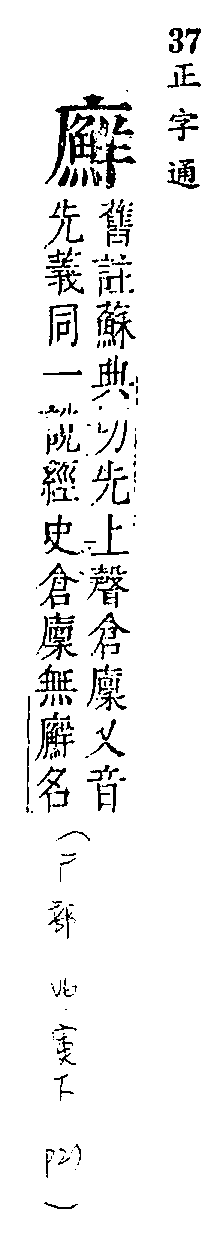 37 正字通
廯
舊註蘇典切先上聲倉廩又音
先義同一說經史倉廩無廯名
(广部 寅下 p21)